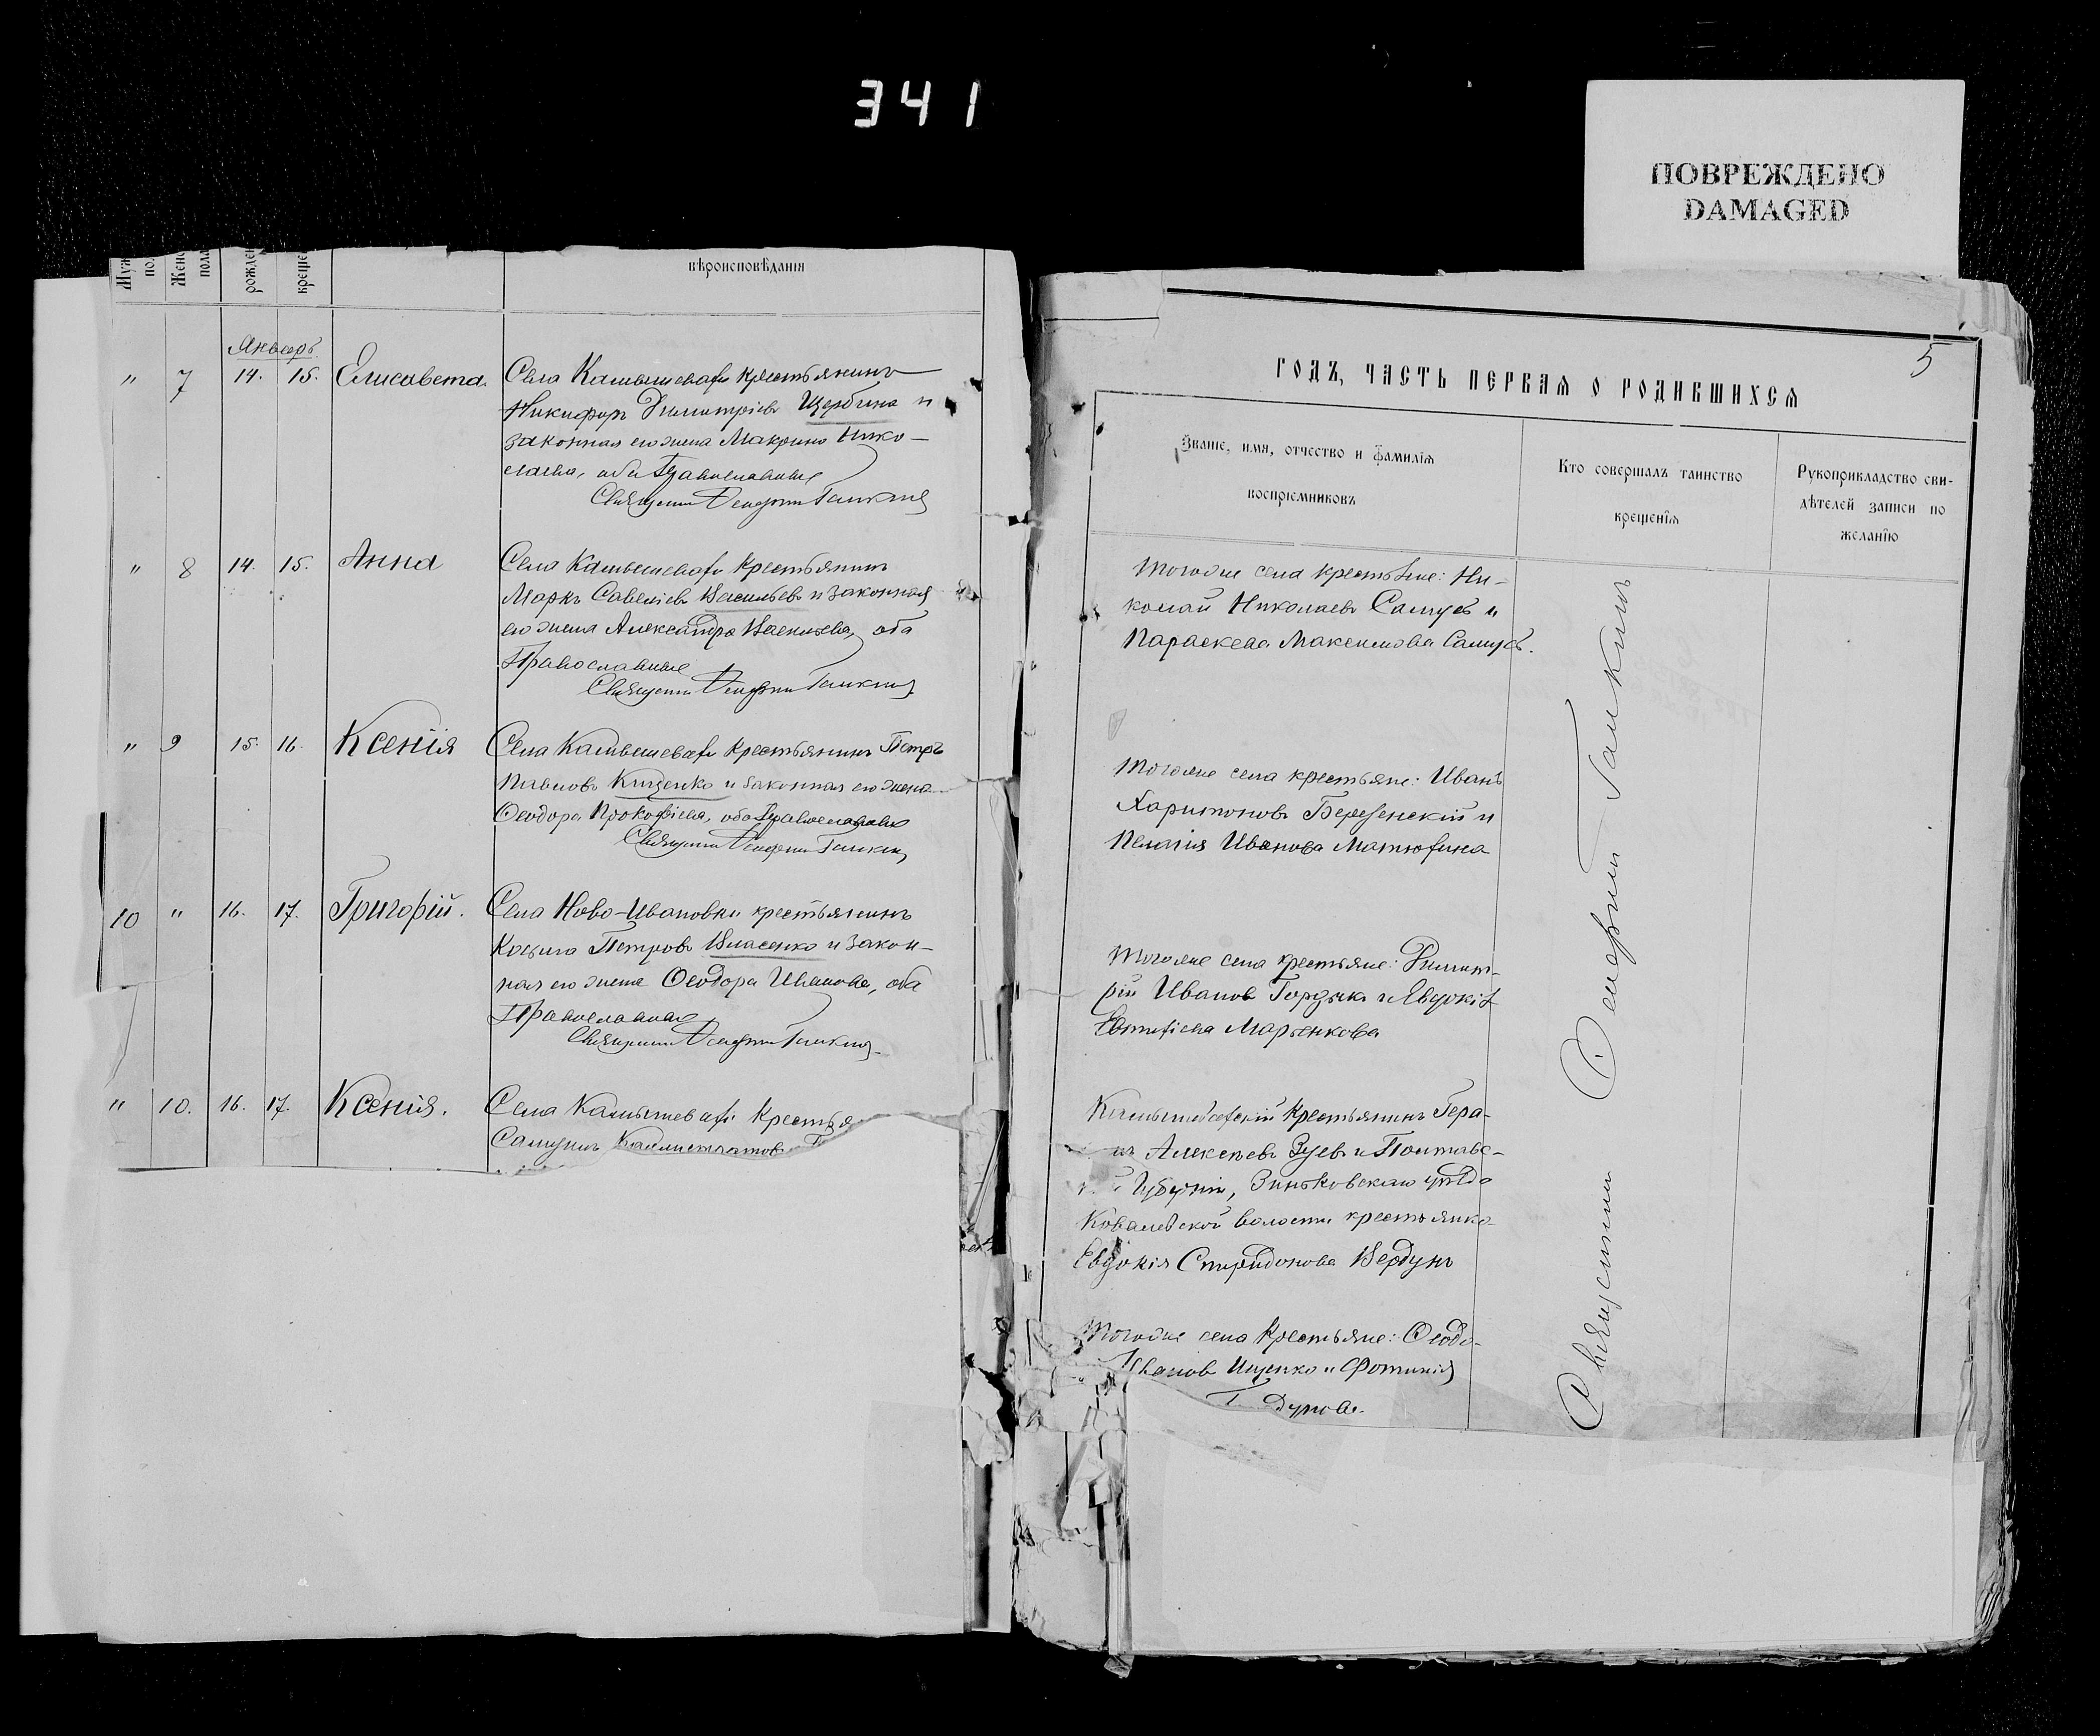 341
ПОВРЕЖДЕНО
DAMAGED
Муж
пол
Женс
пола
рожден
крещен
вѣроисповѣдания
Январь
" 7 14. 15. Елисавета. Села Камышевахи крестьянинъ
Никифоръ Димитріевъ Щербина и
законная его жена Макрина Нико-
лаева, оба Православные
Священникъ Галкинъ
" 8 14. 15. Анна Села Камышевахи крестьянинъ
Маркъ Савеліевъ Васильевъ и законная
его жена Александра оба
Православные
Священникъ Галкинъ
" 9 15. 16. Ксенія Села Камышевахи крестьянинъ Петръ
Павловъ Кищенко и законная его жена
Ѳеодора Прокофіева, оба Православные
Священникъ Галкинъ
10 " 16. 17. Григорій. Села Ново-Ивановки крестьянинъ
Косьма Петровъ Власенко и закон-
ная его жена Ѳеодора Иванова, оба
Православные
Священникъ Галкинъ
" 10. 16. 17. Ксенія. Села Камышевахи Крестья
Самуилъ Каллистратов
5
ГОДЪ, ЧАСТЬ ПЕРВАЯ О РОДИВШИХСЯ
Званіе, имя, отчество и фамилія
воспріемниковъ
Кто совершалъ таинство
крещенія
Рукоприкладство сви-
дѣтелей записи по
желанію
Тогоже села крестьяне: Ни-
колай Николаевъ Самусь и
Параскева Максимова Самусь.
Тогоже села крестьяне: Иванъ
Харитоновъ Березенскій и
Пелагія Иванова Матюхина
Тогоже села крестьяне: Димит-
рій Ивановъ и Евдокія
Евтихіева Марченкова
Камышевахскій Крестьянинъ Гера-
Алексѣевъ Зуевъ и Полтавс-
Губерніи, Зиньковскаго уѣзда
Ковалевской волости крестьянка
Евдокія Спиридонова Вердунъ
Тогоже села Крестьяне: Ѳеодо-
Ивановъ Ищенко и Фотинія
Священникъ Галкинъ